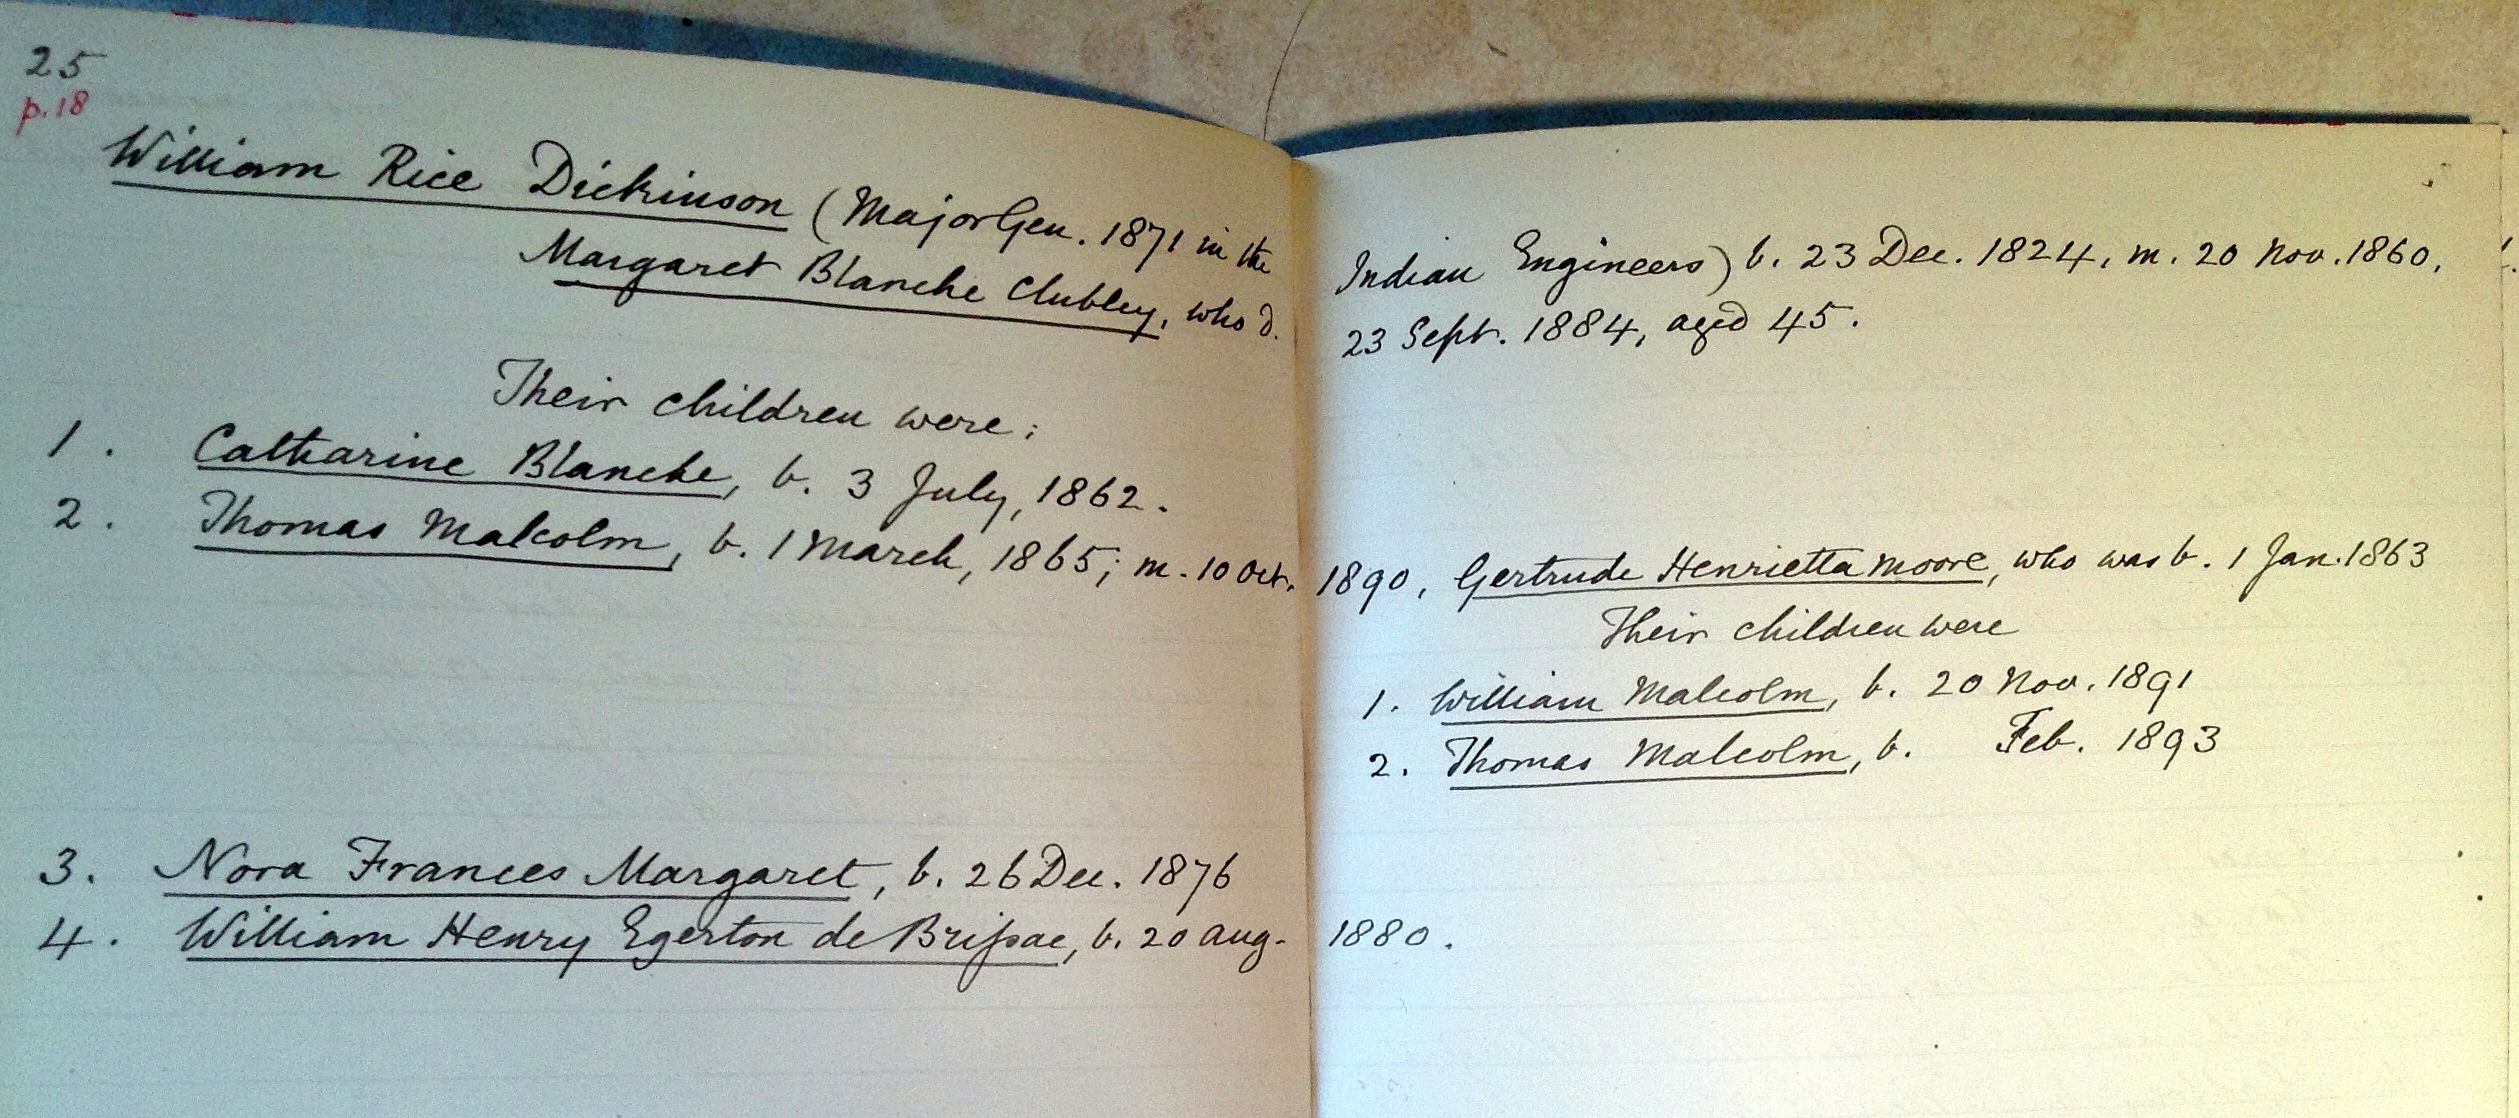 25
p. 18
William Rice Dickinson (Major Gen. 1871 in the Indian Engineers) b. 23 Dec. 1824, m. 20 Nov. 1860,
Margaret Blanche Clubley, who d. 23 Sept. 1884, aged 45.
Their children were:
1. Catharine Blanche, b. 3 July, 1862.
2. Thomas Malcolm, b. 1 March, 1865; m. 10 Oct. 1890, Gertrude Henrietta Moore, who was b. 1 Jan. 1863
Their children were
1. William Malcolm, b. 20 Nov. 1891
2. Thomas Malcolm, b. Feb. 1893
3. Nora Frances Margaret, b. 26 Dec. 1876
4. William Henry Egerton de Briſsac, b. 20 Aug. 1880.